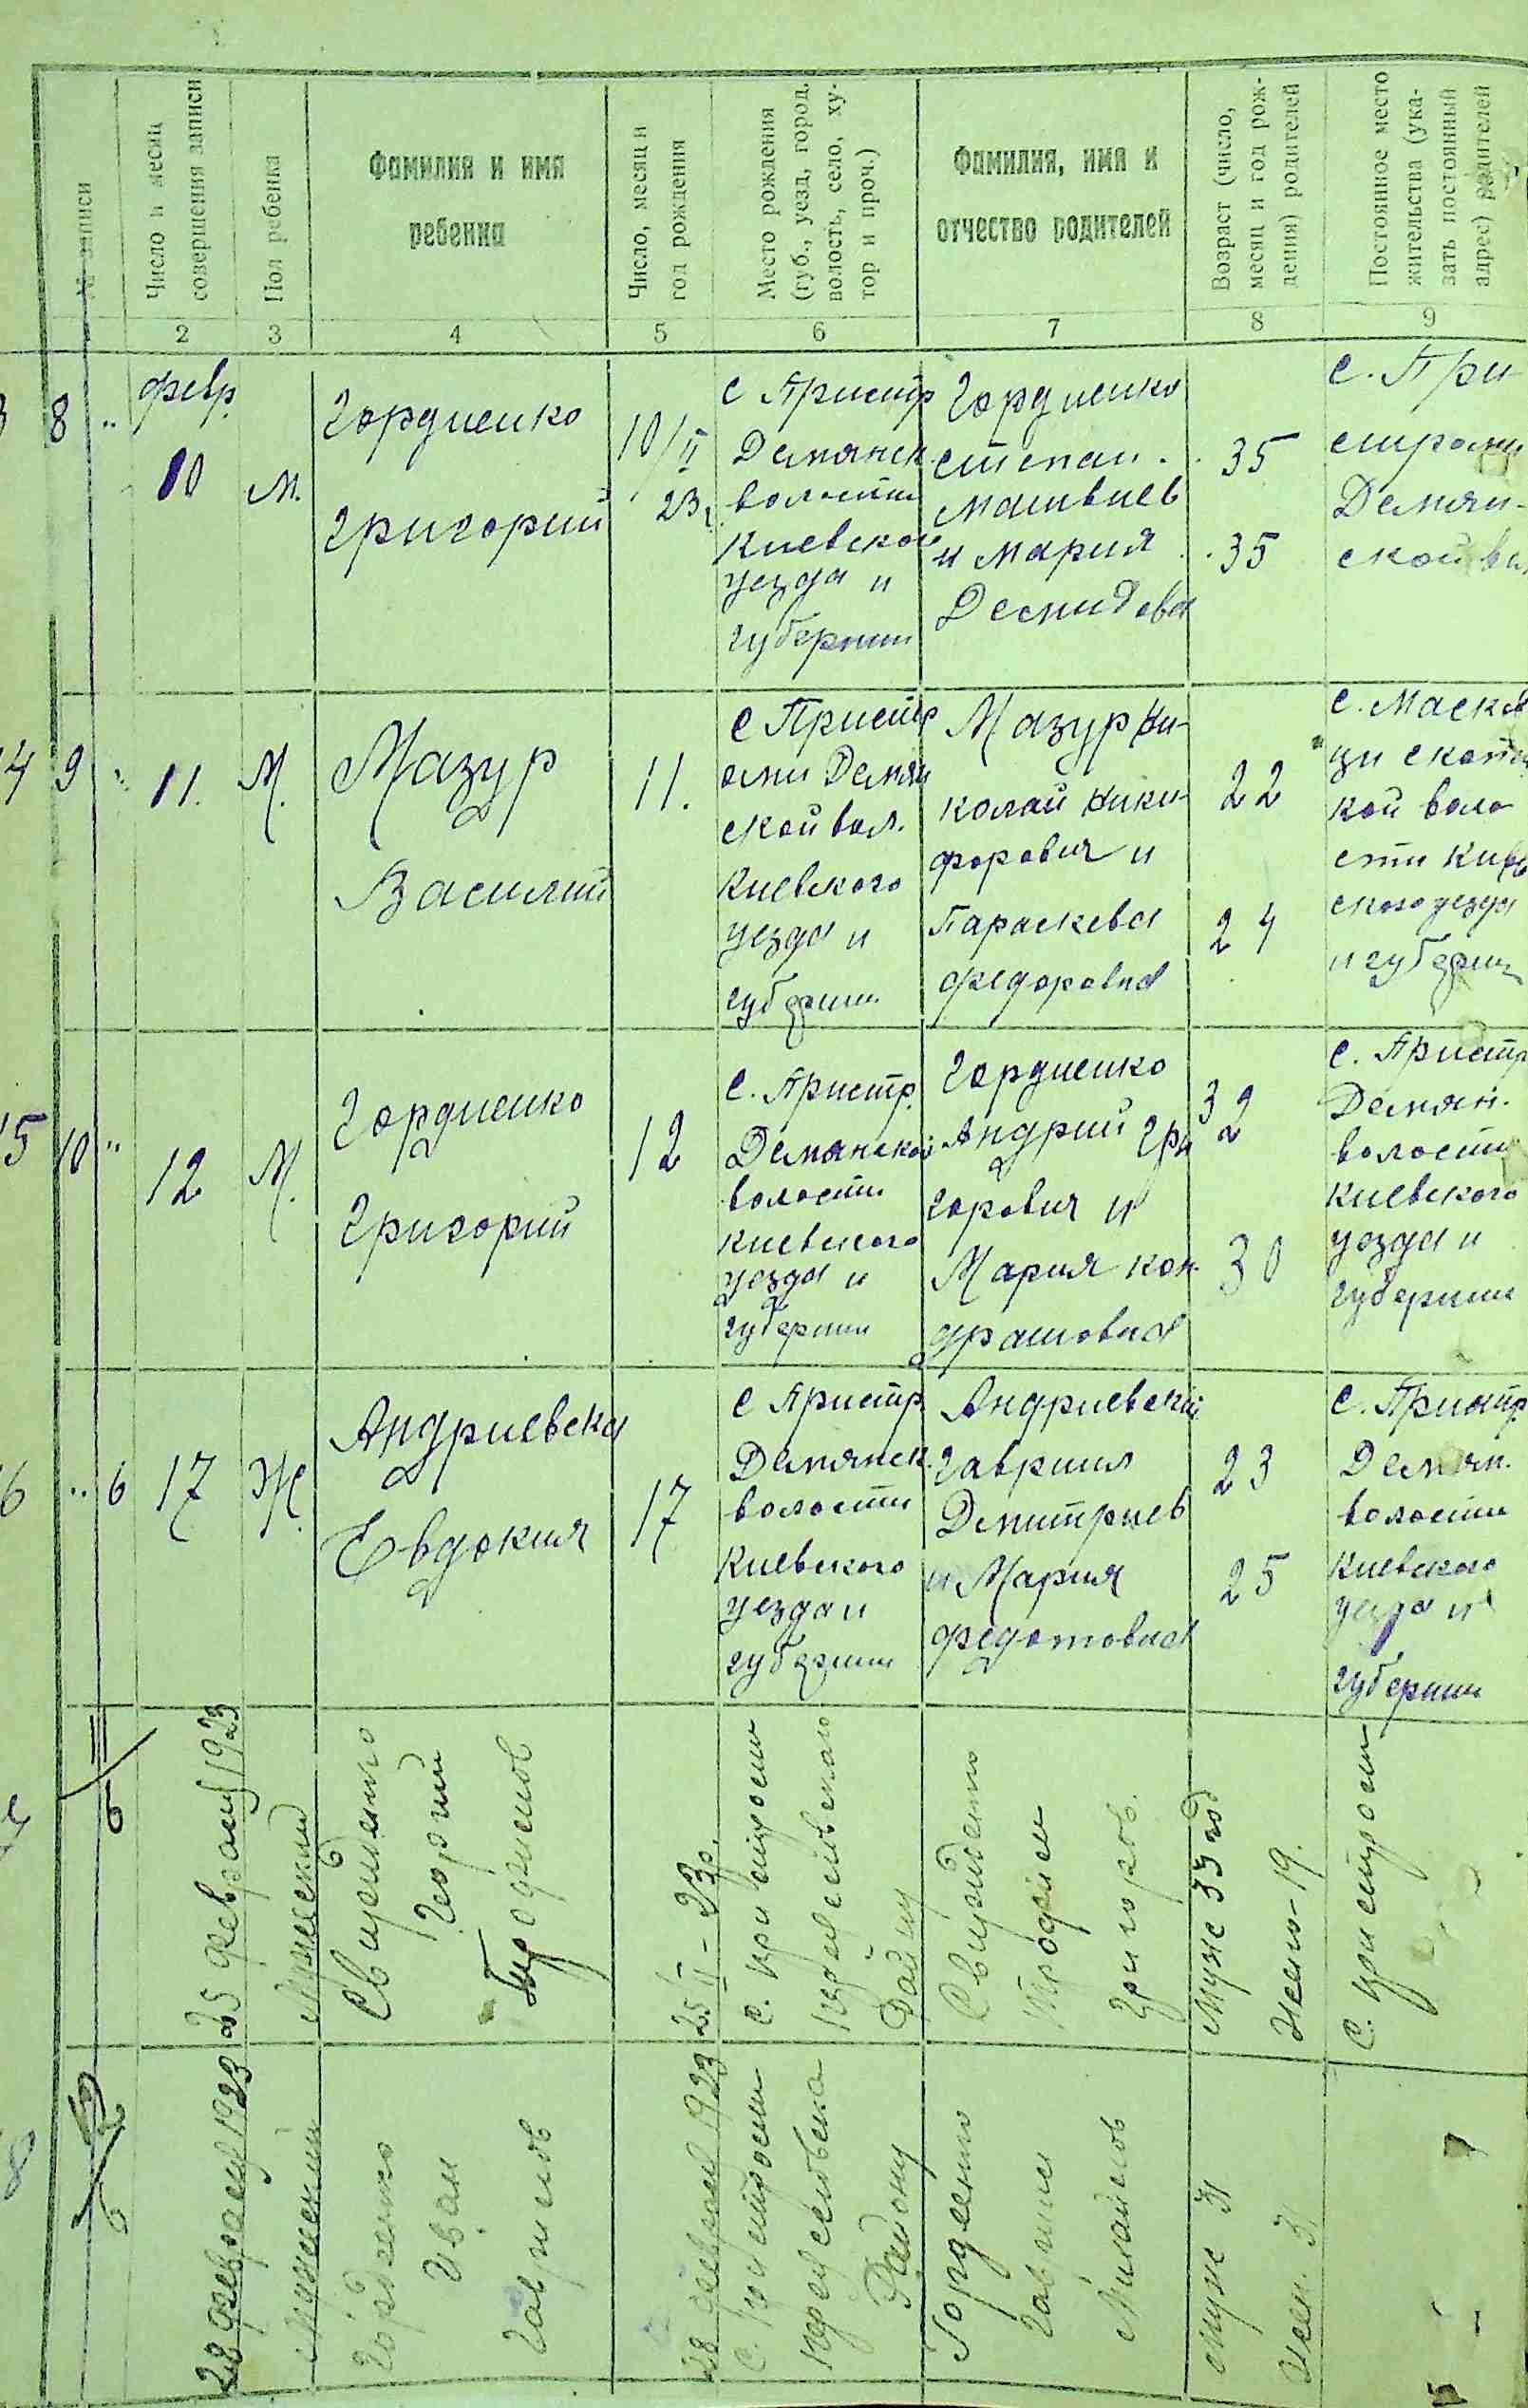 № записи
Число и месяц
совершения записи
Пол ребенка
Фамилия и имя
ребенка
Число, месяц и
год рождения
Место рождения
(губ., уезд, город,
волость, село, ху-
тор и проч.)
Фамилия, имя и
отчество родителей
Возраст (число,
месяц и год рож-
дения) родителей
Постоянное место
жительства (ука-
зать постоянный
адрес) родителей
2
3
4
5
6
7
8
9
8
февр.
10
м.
Гордиенко
Григорий
10/II
23
с Пристр
Демянск
волости
Киевского
уезда и
губернии
Гордиенко
Степан
Матвиев
и Мария
Демидова
35
35
с. При
строми
Демян-
ской
4
9
11.
М.
Мазур
Василий
11.
с Пристр
оми Демян
ской вол.
Киевского
уезда и
губернии
Мазур Ни-
колай Ники-
форович и
Параскева
Федоровна
22
24
с.
кой воло
сти Киев
ского уезда
и губернии
15
10
"
12
М.
Гордиенко
Григорий
12
с. Пристр.
Демянской
волости
Киевского
уезда и
губернии
Гордиенко
Андрий Гри
горович и
Мария Кон
дратовна
32
30
с. Пристр
Демян.
волости
Киевского
уезда и
губернии
6
6
17
Ж.
Андриевска
Евдокия
17
с Пристр.
Демянск.
волости
Киевского
уезда и
губернии
Андриевский
Гавриил
Дмитриев
и Мария
Федотовна
23
25
с. Пристр.
Демян.
волости
Киевского
уезда и
губернии
25 февраля 1923
Мужский
Свириденко
Георгий
Трофимов
25/II - 23р.
Свириденко
Трофим
Григоров.
Муж 33 год
Жено-19.
с.
28 февраля 1923
Мужеский
Гордиенко
Иван
Гаврилов
28 февраля 1923
Гордиенко
Гаврил
Михайлов
Муж 31
Жен. 31